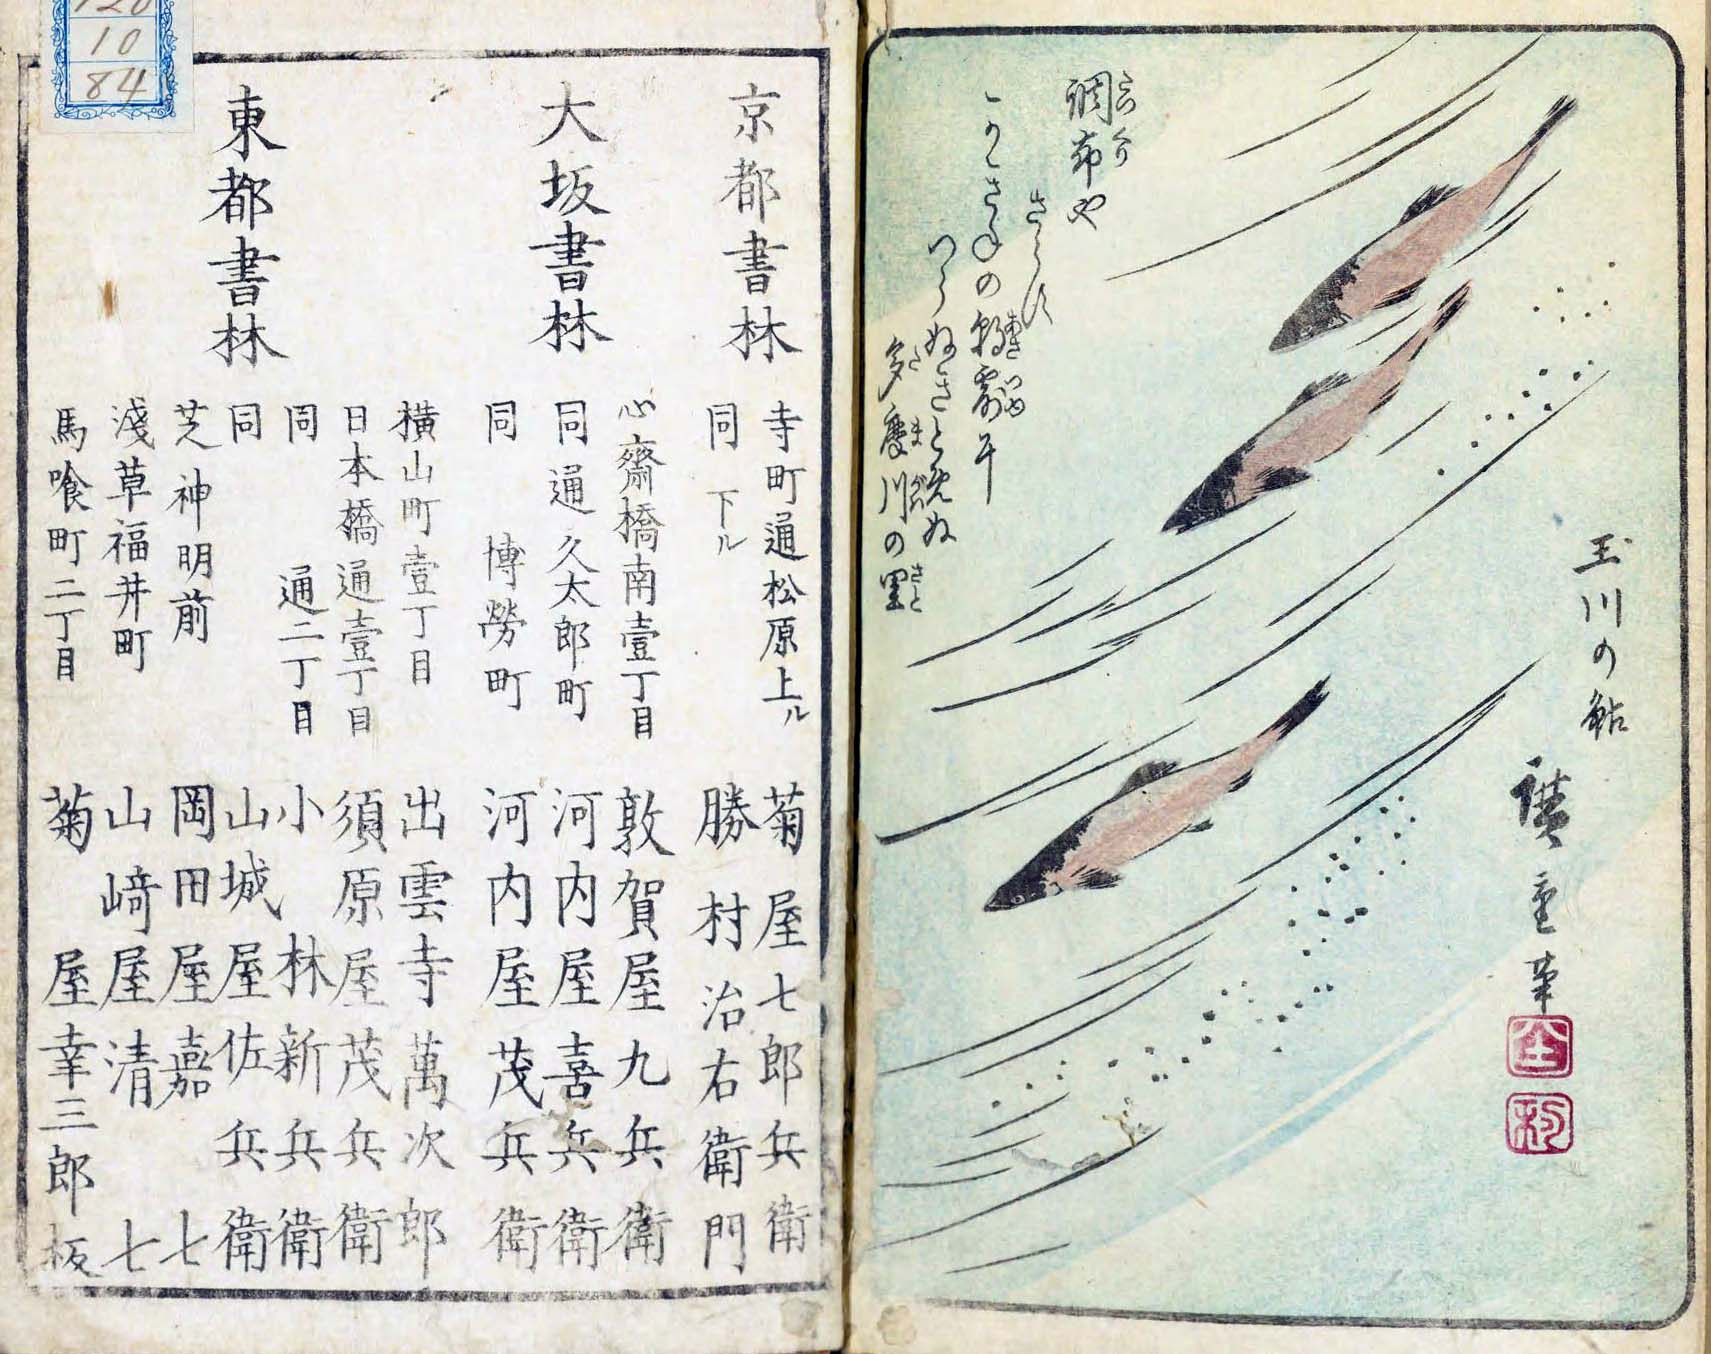 玉川の鮎
廣重筆
調布や
さらす
かきねの朝露を
つらぬきとめぬ
多摩川の里
京都書林
寺町通松原上ル 菊屋七郎兵衛
同 下ル 勝村治右衛門
大坂書林
心齋橋南壹丁目 敦賀屋九兵衛
同通久太郎町 河内屋喜兵衛
同 博勞町 河内屋茂兵衛
東都書林
横山町壹丁目 出雲寺萬次郎
日本橋通壹丁目 須原屋茂兵衛
同 通二丁目 小林新兵衛
同 山城屋佐兵衛
芝神明前 岡田屋嘉七
淺草福井町 山﨑屋清七
馬喰町二丁目 菊屋幸三郎板
10
84